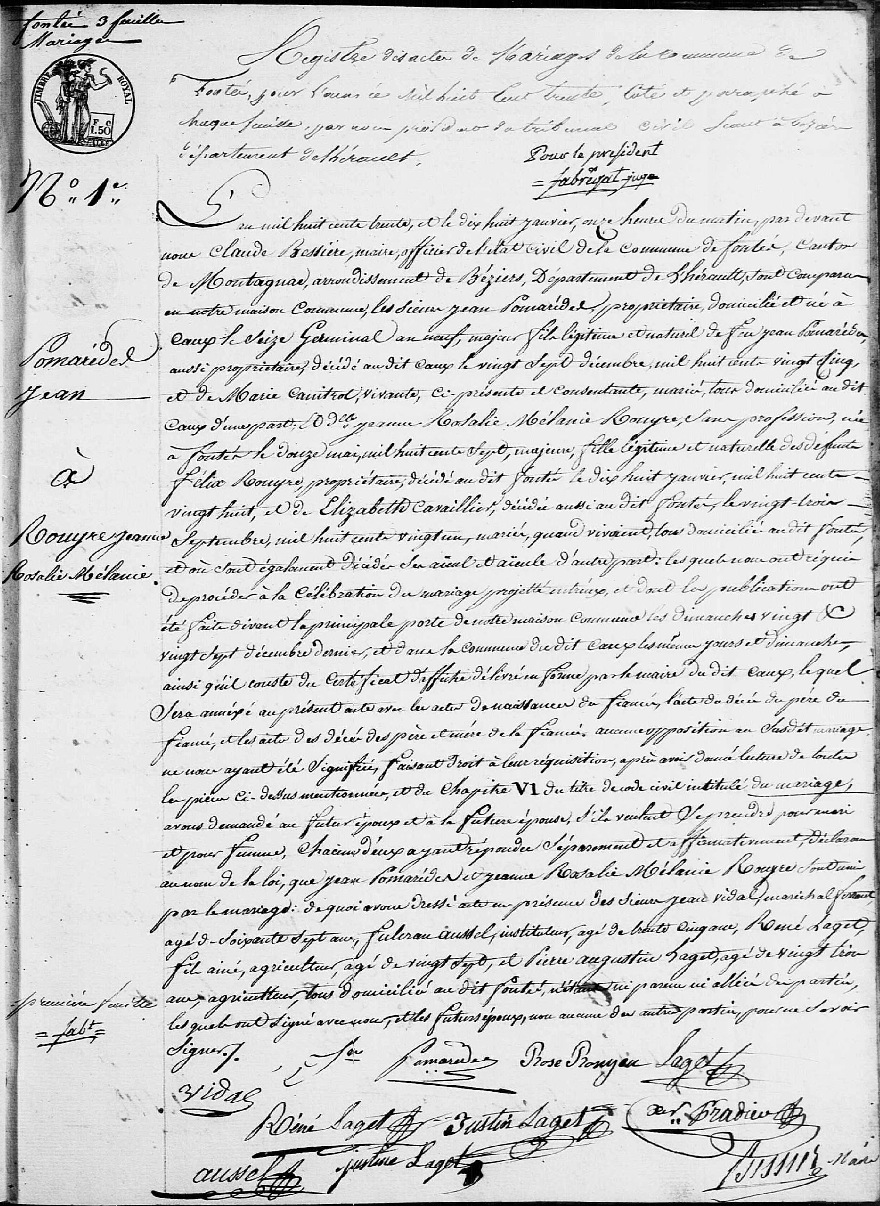 fontés 3 feuilles
Mariages
TIMBRE ROYAL
F. C
1.50
Registre des actes de Mariages de la commune de
Fontés, pour l'année Mil huit Cent trente, coté et paraphé à
chaque feuille, par nous président du tribunal civil séant à Béziers
département de l'hérault.
Pour le président
=fabregat juge=
N° 1er
L'an mil huit cents trente, et le dix huit janvier, onze heure du matin, par devant
nous Claude Bessière, maire, officier de l'état civil de la commune de fontés, Canton
de Montagnac, arrondissement de Béziers, Département de l'hérault, sont comparu
en notre maison Commune, les sieur jean Pomarédes, propriétaire, domicilié et né à
Caux le Seize Germinal an neuf, majeur fils légitime et naturel de feu jean Pomarédes,
aussi propriétaire, décédé au dit Caux le vingt Sept décembre, mil huit cents vingt Cinq,
et de Marie Canitrol, vivante, ci présente et consentante, mariés, tous domiciliés au dit
Caux d'une part. Et Dlle jeanne Rosalie Mélanie Rouyre, Sans profession, née
à fontés le douze mai, mil huit cents Sept, majeure, fille légitime et naturelle des défunts
félix Rouyre, propriétaire, décédé au dit fontés le dix huit janvier, mil huit cents
vingt huit, et de Elizabeth Cavaillier, décédée aussi au dit fontés, le vingt-trois
Septembre, mil huit cents vingt un, mariés, quand vivaient, tous domiciliés au dit fontés,
et où sont également décédés Ses aïeul et aïeule d'autre part: les quels nous ont requis
de procéder à la Célébration du mariage projetté entr'eux, et dont les publications ont
été faite devant la principale porte de notre maison Commune les dimanches vingt &
vingt Sept décembre dernier, et dans la commune du dit Caux les mêmes jours et dimanches,
ainsi qu'il conste du Certificat d'affiche délivré en forme par le maire du dit Caux, lequel
Sera annéxé au présent acte avec les actes de naissances des fiancés, l'acte du décès du père du
fiancé, et les acte des décès des père et mère de la fiancée. aucune opposition au Susdit mariage
ne nous ayant été Signifiée, faisant droit à leur réquisition, après avoir donné lecture de toutes
les pièces Ci-dessus mentionnées, et du Chapitre VI du titre de code civil intitulé du mariage,
avons demandé au futur époux et à la future épouse, S'ils veulent Se prendre pour mari
et pour femme, Chacun d'eux ayant répondu Séparément et affirmativement, Déclarons
au nom de la loi, que jean Pomarédes et jeanne Rosalie Mélanie Rouyre Sont unis
par le mariage: de quoi avons dressé acte en présence des Sieurs jean Vidal, maréchal ferrant
agé de Soixante Sept ans, fulcran aussel, instituteur, agé de trente Cinq ans, René Laget,
fils ainé, agriculteur, agé de vingt Sept, et Pierre augustin Laget, agé de vingt trois
ans agriculteur, tous domiciliés au dit fontés, n'étant ni parens ni alliés des parties,
les quels ont Signé avec nous, et les futurs époux, non aucune des autres parties, pour ne Savoir
Signer./.
Pomarédes
jean
à
Rouyre jeanne
Rosalie Mélanie.
première feuille
=fabt=
Pomarédes
Laget
Vidal
Réné Laget
Justin Laget
Pradier
aussel
justine Laget
Maire